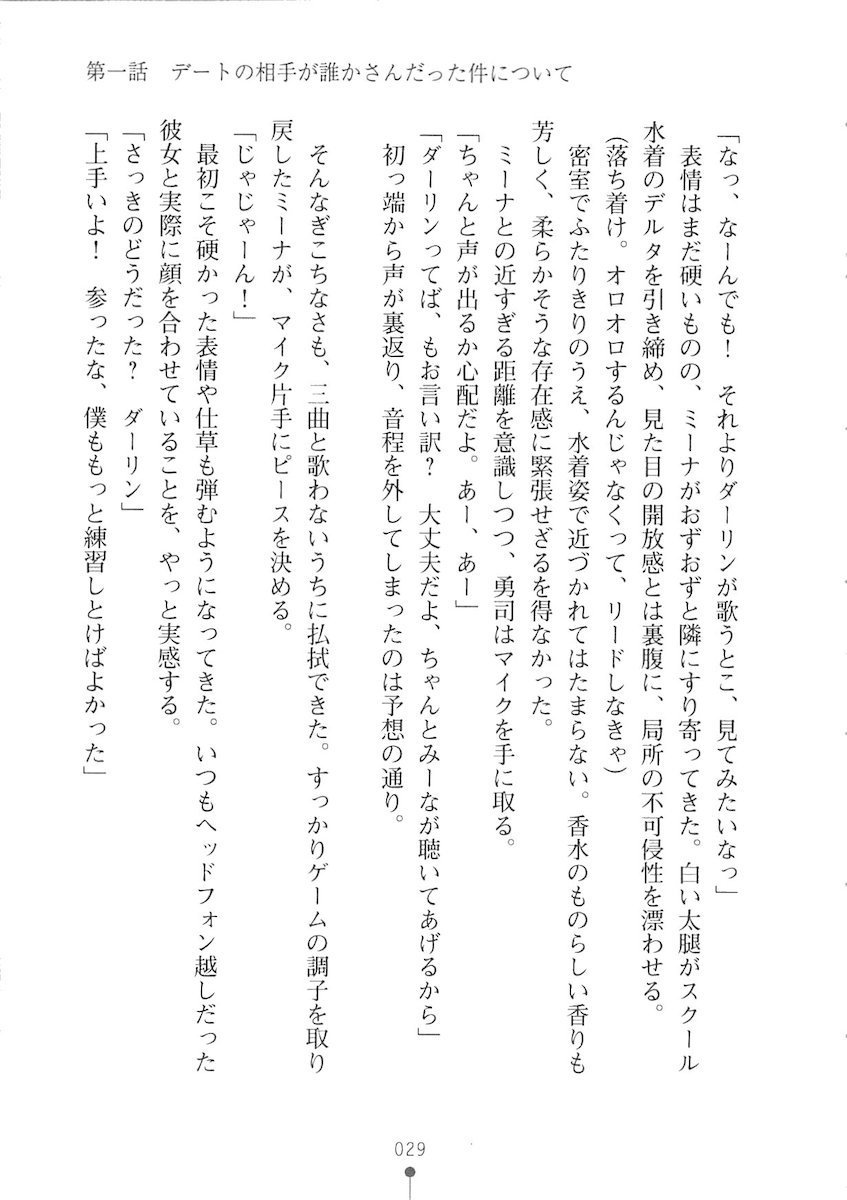 第一話　デートの相手が誰かさんだった件について
「なっ、なーんでも！　それよりダーリンが歌うとこ、見てみたいなっ」
　表情はまだ硬いものの、ミーナがおずおずと隣にすり寄ってきた。白い太腿がスクール
水着のデルタを引き締め、見た目の開放感とは裏腹に、局所の不可侵性を漂わせる。
（落ち着け。オロオロするんじゃなくって、リードしなきゃ）
　密室でふたりきりのうえ、水着姿で近づかれてはたまらない。香水のものらしい香りも
芳しく、柔らかそうな存在感に緊張せざるを得なかった。
　ミーナとの近すぎる距離を意識しつつ、勇司はマイクを手に取る。
「ちゃんと声が出るか心配だよ。あー、あー」
「ダーリンってば、もお言い訳？　大丈夫だよ、ちゃんとみーなが聴いてあげるから」
　初っ端から声が裏返り、音程を外してしまったのは予想の通り。
　そんなぎこちなさも、三曲と歌わないうちに払拭できた。すっかりゲームの調子を取り
戻したミーナが、マイク片手にピースを決める。
「じゃじゃーん！」
　最初こそ硬かった表情や仕草も弾むようになってきた。いつもヘッドフォン越しだった
彼女と実際に顔を合わせていることを、やっと実感する。
「さっきのどうだった？　ダーリン」
「上手いよ！　参ったな、僕ももっと練習しとけばよかった」
029